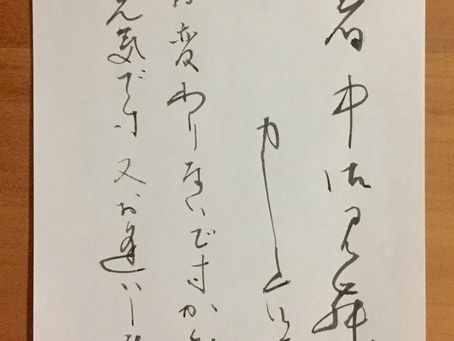 暑中御見舞
申し上げ
お変わりないですか
元気です 又お逢いし